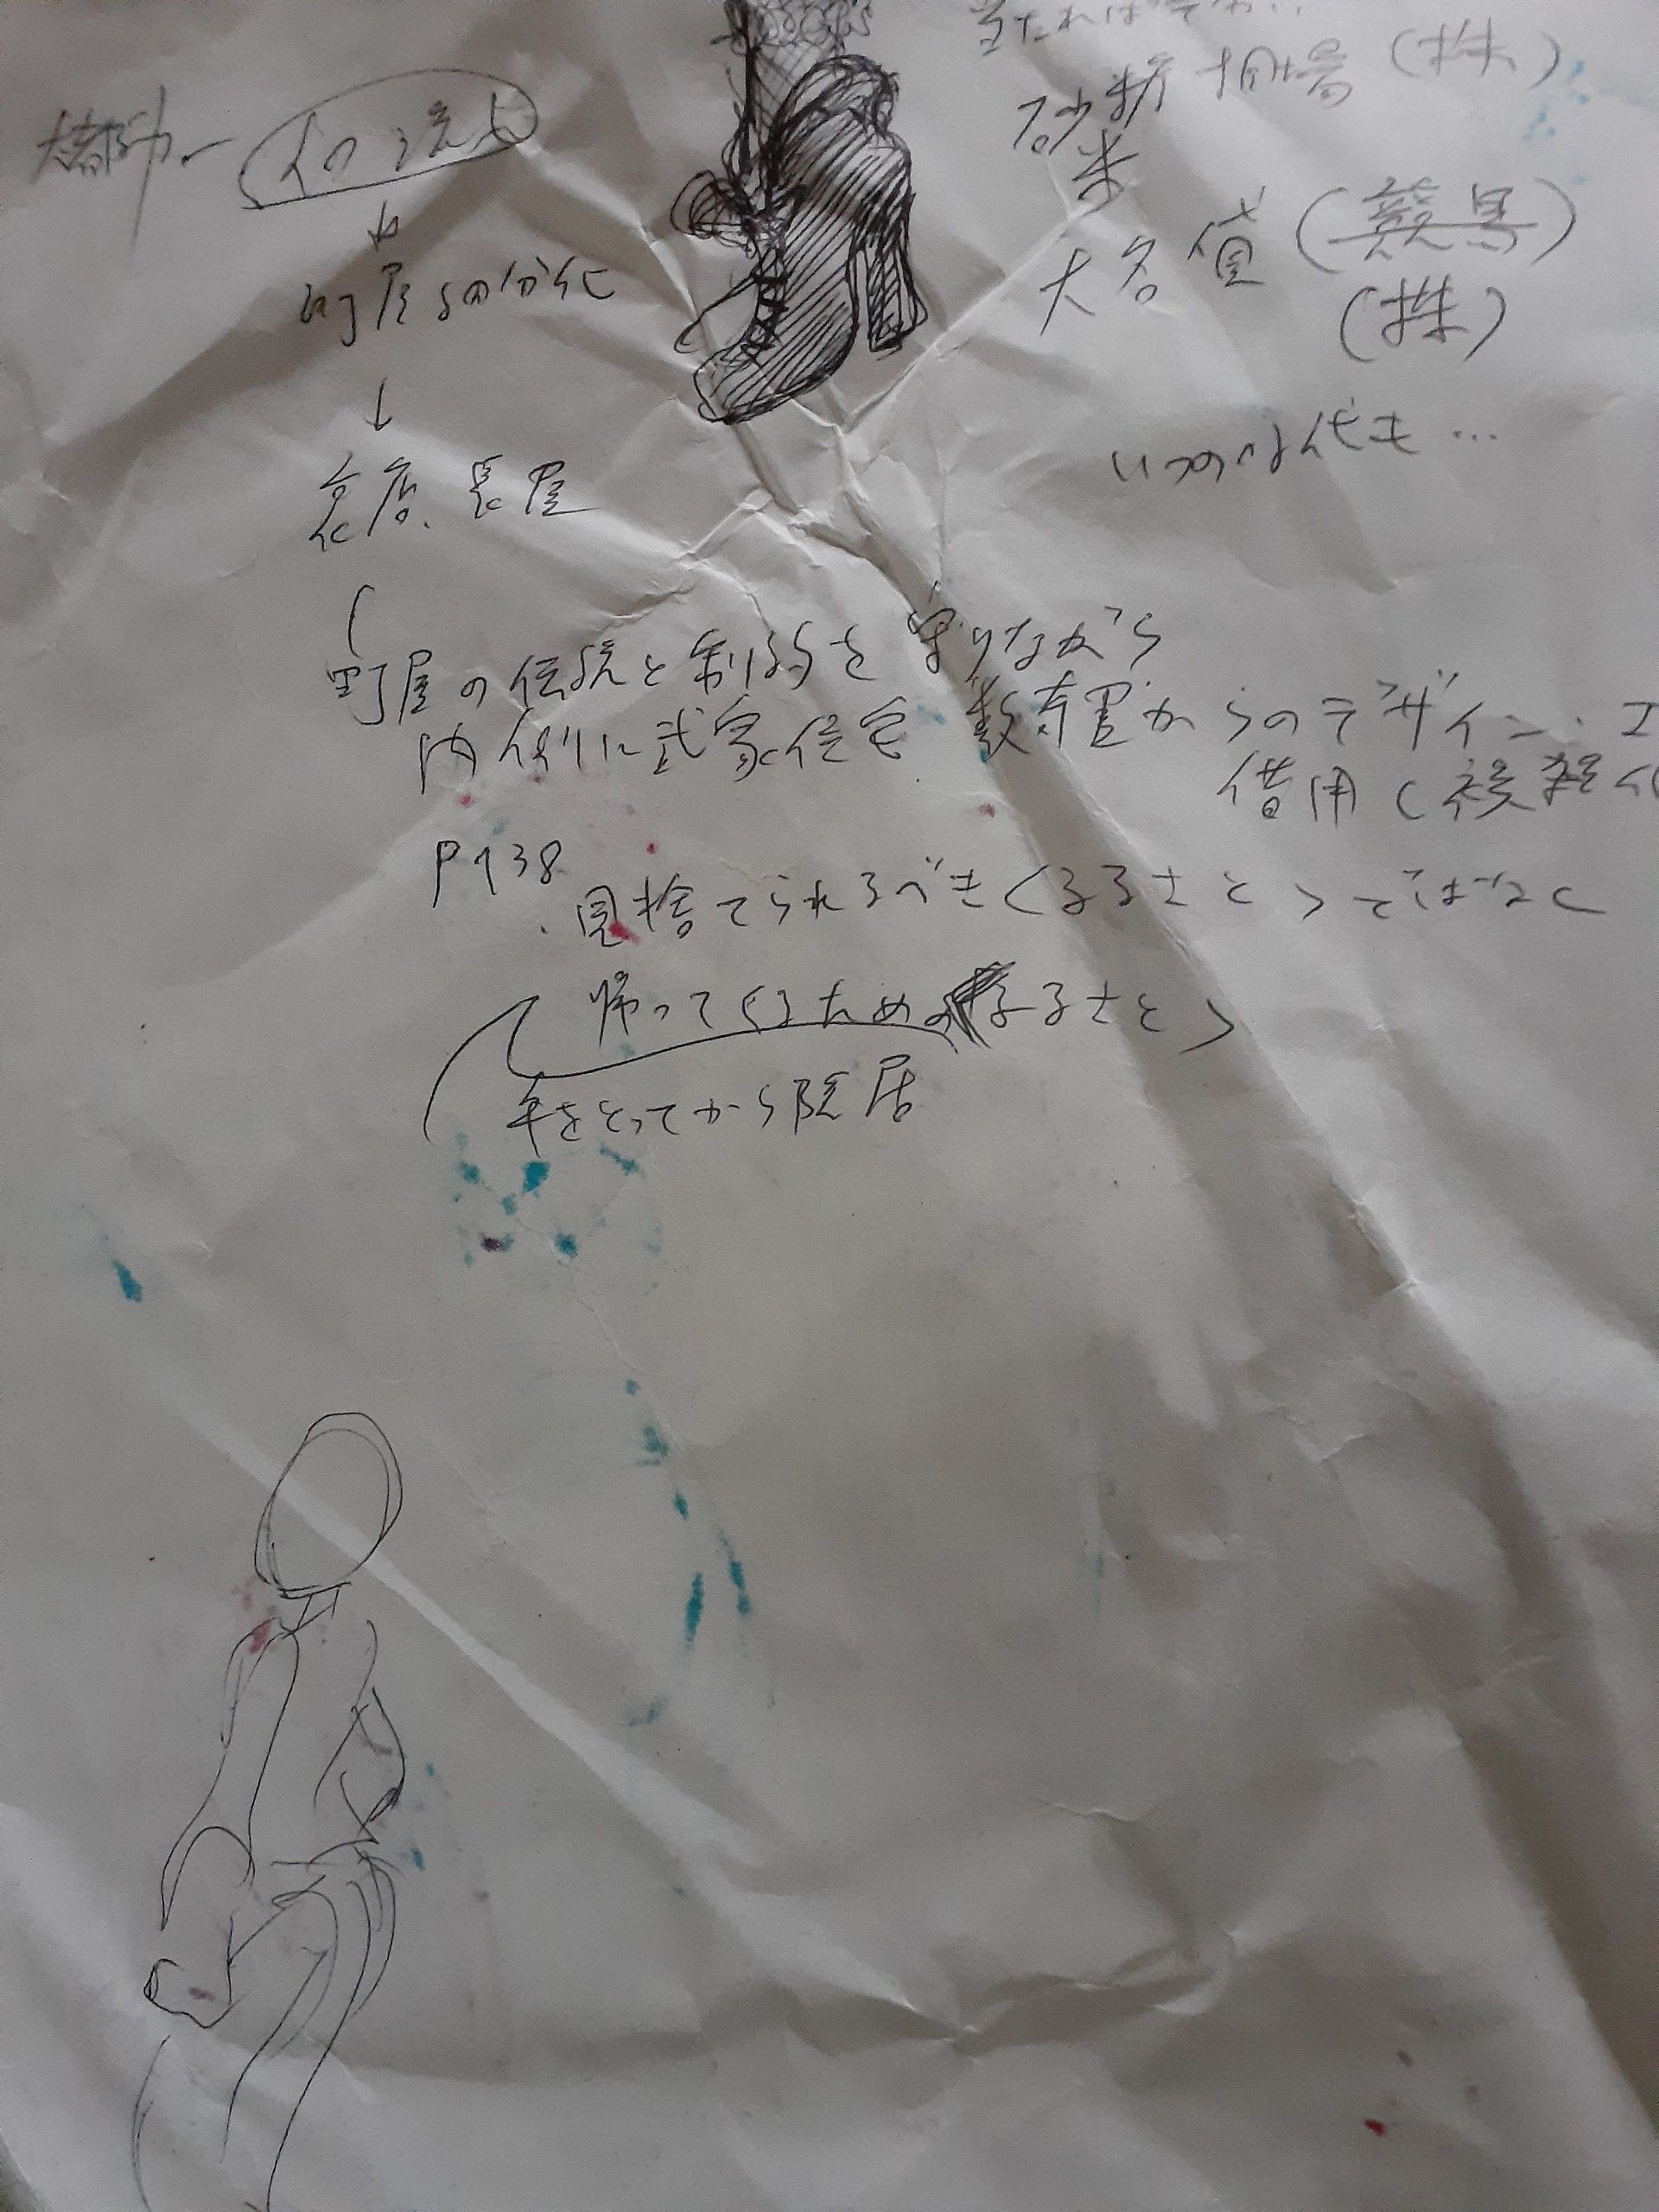 当たれば
砂糖 相場 (株)
米
大名貸 (競馬)
(株)
いつの時代も…
人の流れ
町屋の分化
表店、長屋
町屋の伝統と制約を守りながら
内側に武家住宅、数寄屋からのデザイン・
借用（複雑化
P138
・見捨てられるべき〈ふるさと〉ではなく
帰ってくるための〈ふるさと〉
年をとってから隠居